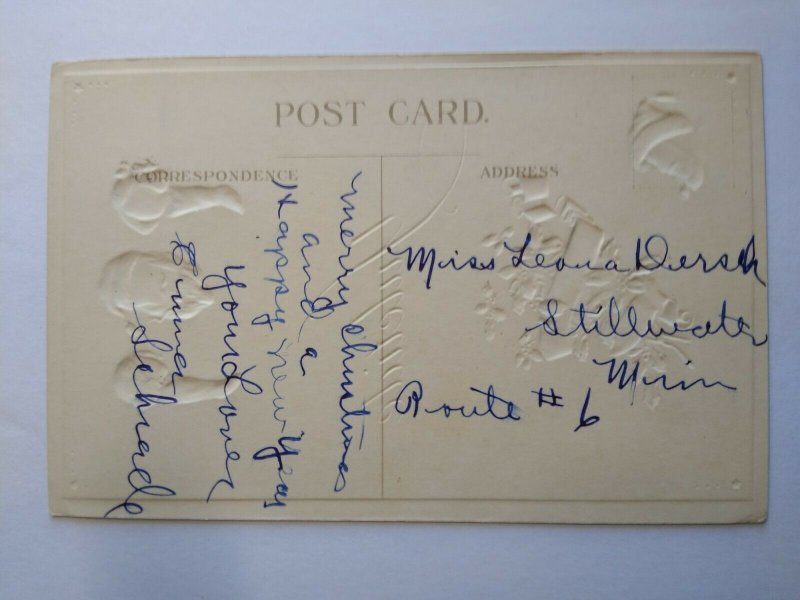 POST CARD.
CORRESPONDENCE
ADDRESS
Merry christmas
and a
Happy New Year
Your Lover
Emma
Schrade
Miss Leona Dersch
Stillwater
Minn
Route # 6